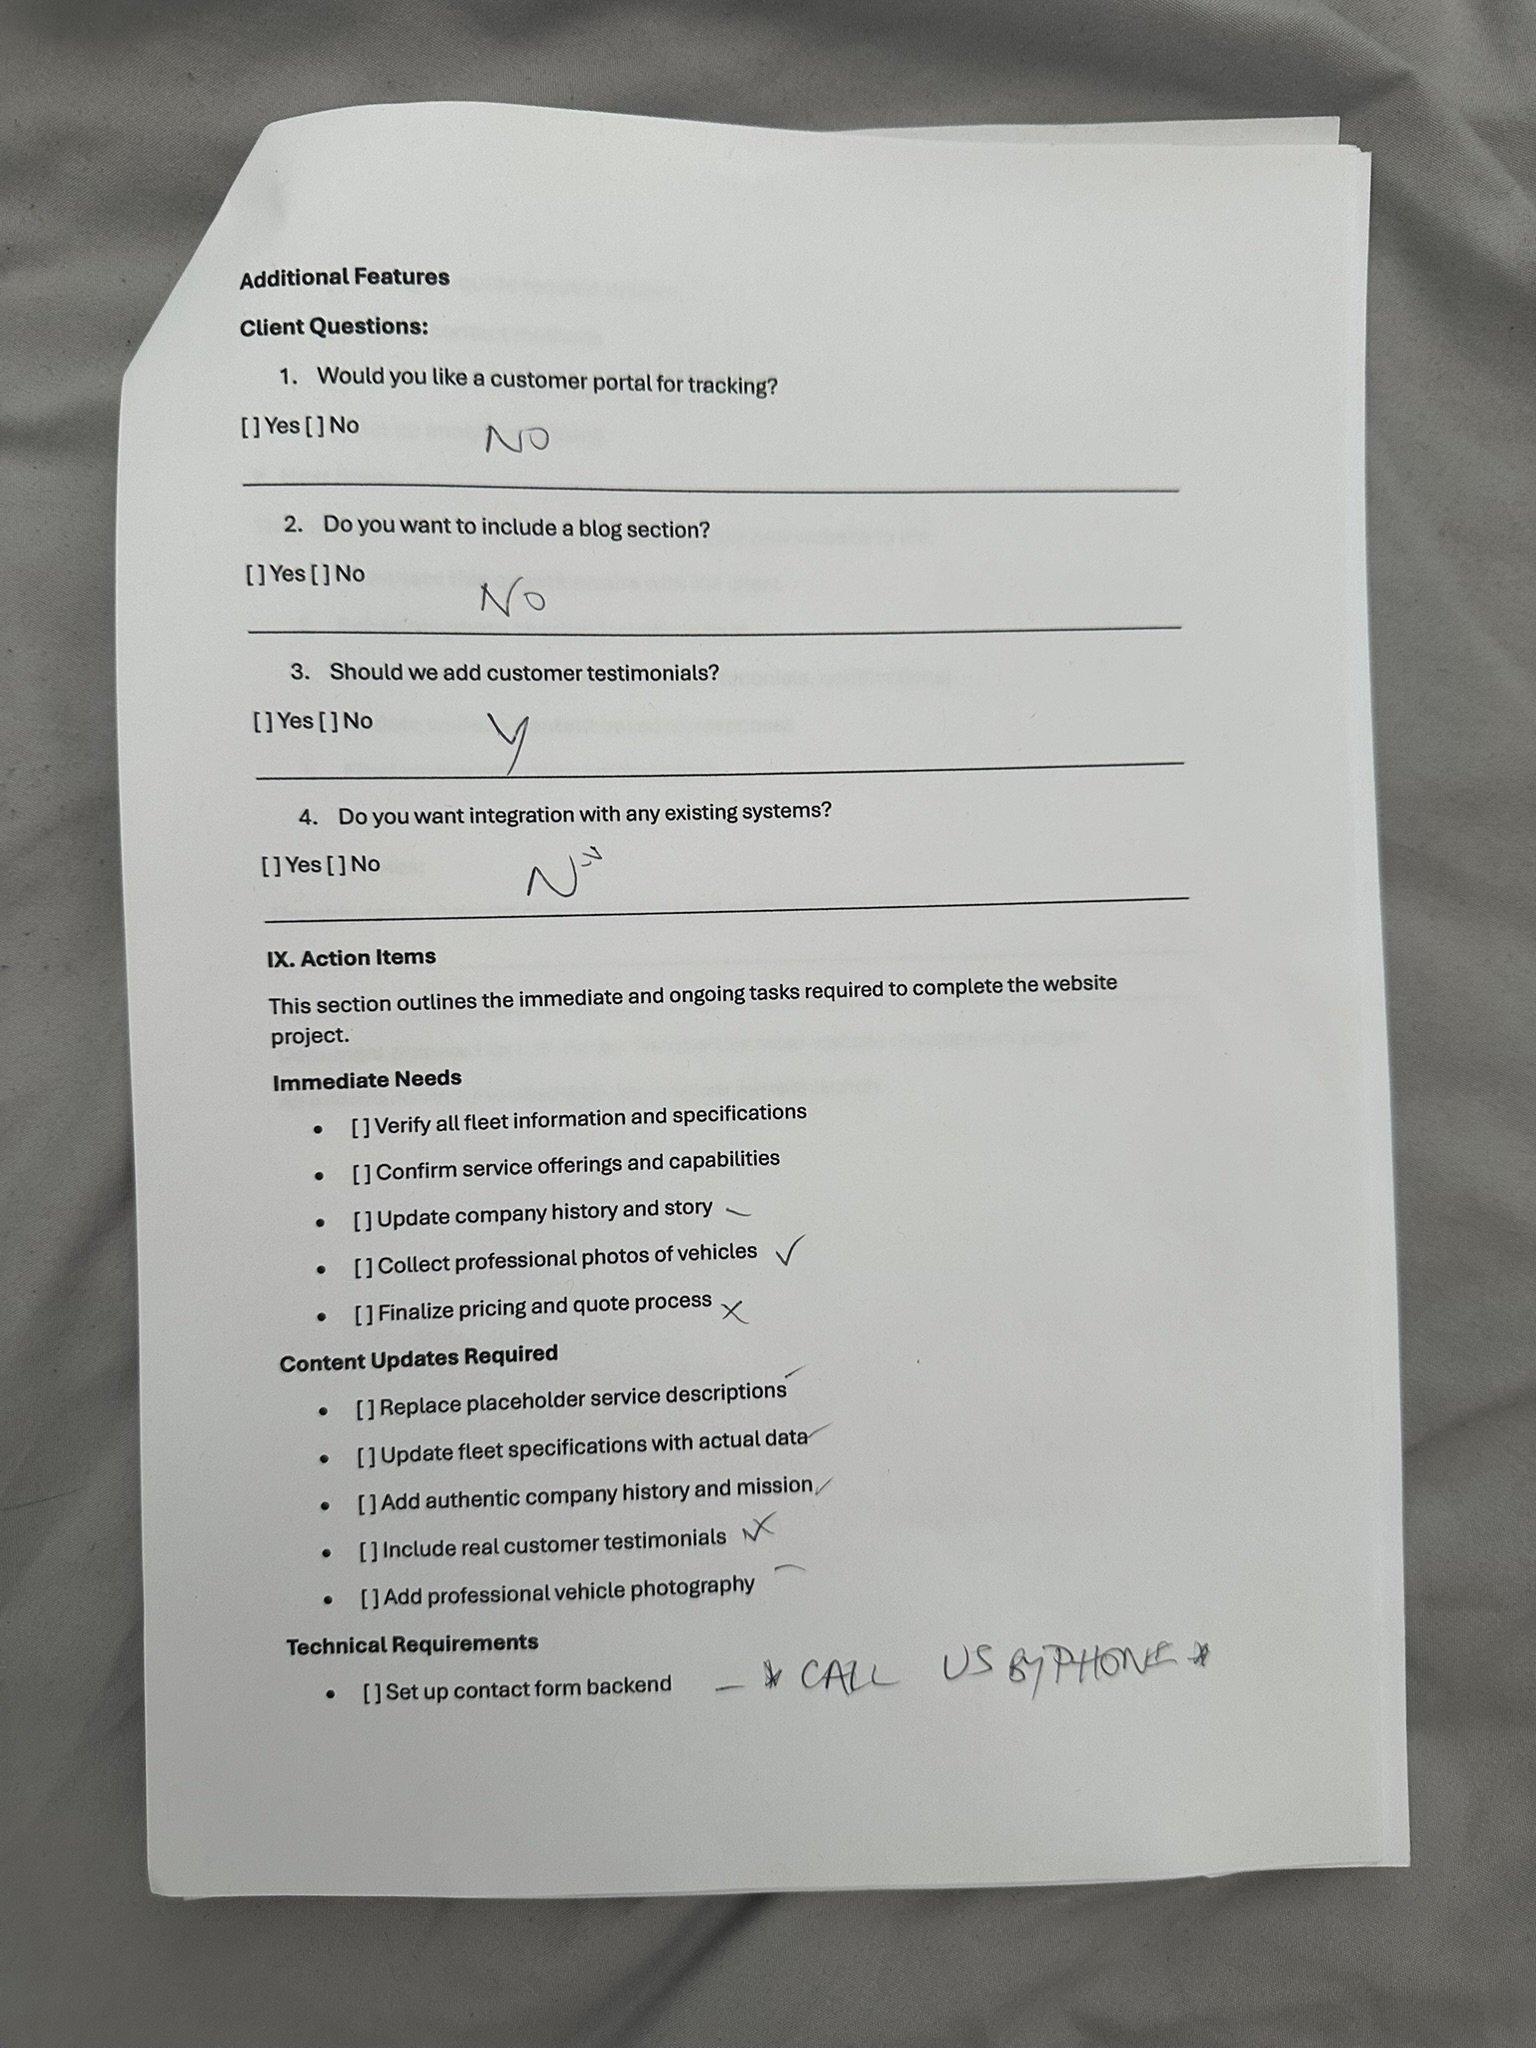 Additional Features
Client Questions:
1. Would you like a customer portal for tracking?
[ ] Yes [ ] No
NO
2. Do you want to include a blog section?
[ ] Yes [ ] No
No
3. Should we add customer testimonials?
[ ] Yes [ ] No
Y
4. Do you want integration with any existing systems?
[ ] Yes [ ] No
IX. Action Items
This section outlines the immediate and ongoing tasks required to complete the website
project.
Immediate Needs
• [ ] Verify all fleet information and specifications
• [ ] Confirm service offerings and capabilities
• [ ] Update company history and story
• [ ] Collect professional photos of vehicles ✓
• [ ] Finalize pricing and quote process X
Content Updates Required
• [ ] Replace placeholder service descriptions
• [ ] Update fleet specifications with actual data
• [ ] Add authentic company history and mission ✓
• [ ] Include real customer testimonials
• [ ] Add professional vehicle photography
Technical Requirements
• [ ] Set up contact form backend — * CALL US By PHONE *